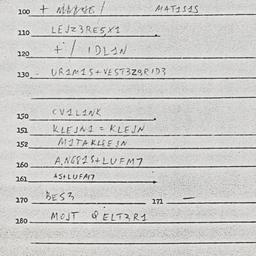 100 + / MAT1S1S
110 LEJZ3RE5X1
120 +/ IDL1N
130 UR1M15+VEST3Z9R1D3
150 CV1L1NK
151 KLEJN1 = KLEJN
152 M1TAKLEJN
160 +LUFM7
161 AS+LUFM7
170 BES3 171 —
180 MOJT QELT3R1